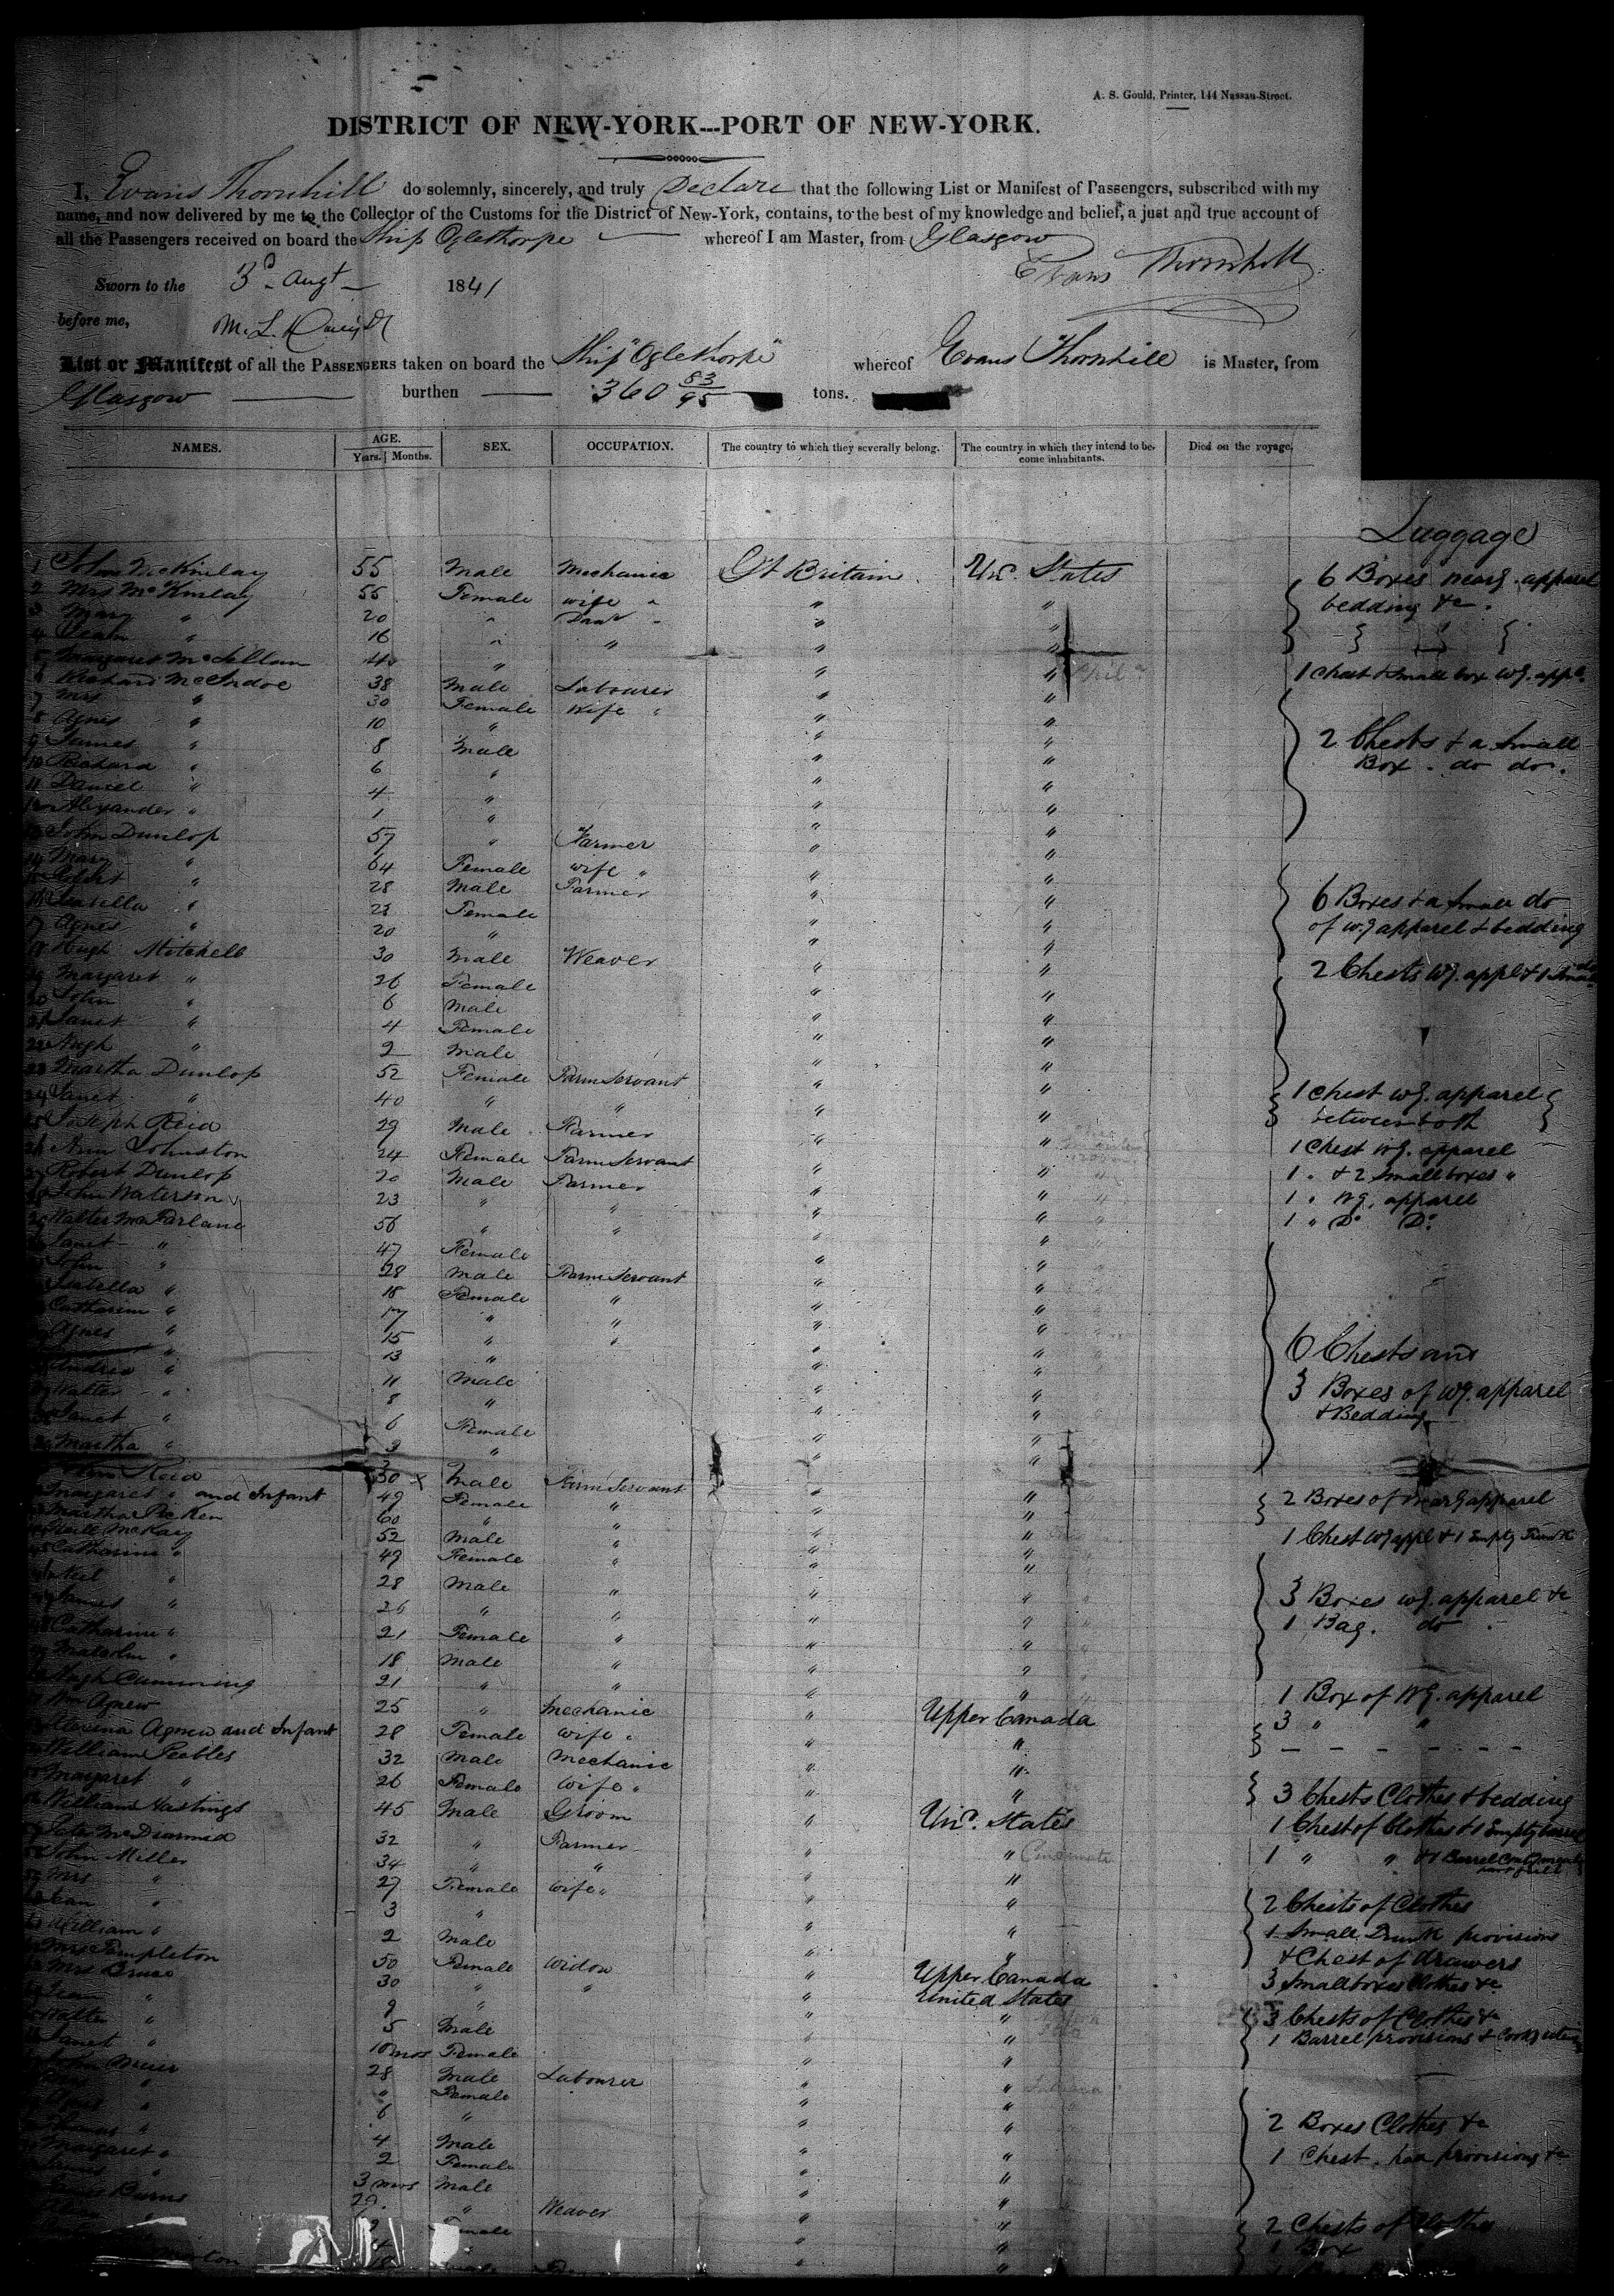 A. S. Gould, Printer, 144 Nassau-Street.
DISTRICT OF NEW-YORK---PORT OF NEW-YORK.
I, Evans Thornhill do solemnly, sincerely, and truly Declare that the following List or Manifest of Passengers, subscribed with my
name, and now delivered by me to the Collector of the Customs for the District of New-York, contains, to the best of my knowledge and belief, a just and true account of
all the Passengers received on board the Ship Oglethorpe whereof I am Master, from Glasgow
Evans Thornhill
Sworn to the 3d Augt 1841
before me, M. L.
List or Manifest of all the PASSENGERS taken on board the Ship "Oglethorpe" whereof Evans Thornhill is Master, from
Glasgow burthen 360 83/95 tons.
NAMES. AGE. SEX. OCCUPATION. The country to which they severally belong. The country in which they intend to be- Died on the voyage.
Years. Months. come inhabitants.
Luggage
1 John McKinlay 55 Male Mechanic Gt Britain Un. States 6 Boxes wearg. apparel
2 Mrs McKinlay 55 Female wife " " " bedding &c.
3 Mary " 20 " Daur " "
4 Jean " 16 " " " "
5 Margaret McLellan 40 " " " 1 Chest & Small box wg. appl.
6 Richard McIndoe 38 Male Labourer " "
7 Mrs " 30 Female Wife " " "
8 Agnes " 10 " " "
9 James " 8 Male " " 2 Chests & a Small
10 Richard " 6 " " " Box. do do.
11 Daniel " 4 " " "
12 Alexander " 1 " " "
13 John Dunlop 57 " Farmer " "
14 Mary " 64 Female wife " " "
15 Robert " 28 Male Farmer " " 6 Boxes & a Small do
16 Isabella " 22 Female " " of wg apparel & bedding
17 Agnes " 20 " " "
18 Hugh Mitchell 30 Male Weaver " " 2 Chests wg. appl & 1 Small do
19 Margaret " 26 Female " "
20 John " 6 Male " "
21 Janet " 4 Female " "
22 Hugh " 2 Male " "
23 Martha Dunlop 52 Female Farm Servant " " 1 Chest wg. apparel
24 Janet " 40 " " " " between both
25 Joseph Reid 29 Male Farmer " "
26 Ann Johnston 24 Female Farm Servant " " 1 Chest wg. apparel
27 Robert Dunlop 20 Male Farmer " " 1 " & 2 Small boxes "
28 John Waterson 23 " " " " 1 " wg. apparel
29 Walter McFarlane 56 " " " " 1 " Do Do
Janet " 47 Female " "
John " 28 Male Farm Servant " "
Isabella " 18 Female " " "
Catharine " 17 " " " "
Agnes " 15 " " " " 6 Chests and
13 " " "
Andrew " 11 Male " " 3 Boxes of wg. apparel
Walter " 8 " " " & Bedding
Janet " 6 Female " "
Martha " 3 " " "
Reid 30 Male Farm Servant " "
Margaret " and Infant 49 Female " " " 2 Boxes of wearg apparel
Martha Picken 60 " " " "
Neill McKay 52 Male " " " 1 Chest wg appl & 1 Empty Trunk
Catharine " 49 Female " " "
Neil " 28 Male " " " 3 Boxes wg. apparel &c
James " 26 " " " " 1 Bag. do
Catharine " 21 Female " " "
Malcolm " 18 Male " " "
Hugh Cumming 21 " " " " 1 Box of Wg. apparel
Wm Agnew 25 " Mechanic " Upper Canada 3 " "
Agnew and Infant 28 Female Wife " " "
William Peebles 32 Male Mechanic " "
Margaret " 26 Female Wife " " " 3 Chests Clothes & bedding
William Hastings 45 Male Groom " Un. States 1 Chest of Clothes & 1 Empty barrel
Peter McDiarmid 32 " Farmer " " Cincinnati 1 " " & 1 Barrel
John Miller 34 " " " "
Mrs " 27 Female wife " " " 2 Chests of Clothes
" 3 " " " 1 Small Trunk provisions
William " 2 Male " " & Chest of drawers
Mrs Templeton 50 Female Widow " Upper Canada 3 Small boxes Clothes &c
Mrs Bruce 30 " " " United States
Jean " 9 " " " 3 Chests of Clothes &c
Walter " 5 Male " " 1 Barrel provisions & Cookg
Janet " 10 mos Female " "
John 28 Male Labourer " "
" " Female " "
Agnes " 6 " " " 2 Boxes Clothes &c
Thomas " 4 Male " " 1 Chest. had provisions &c
Margaret " 2 Female " "
" 3 mos Male " "
Burns 29 " Weaver " " 2 Chests of Clothes
Female " " 1 Box